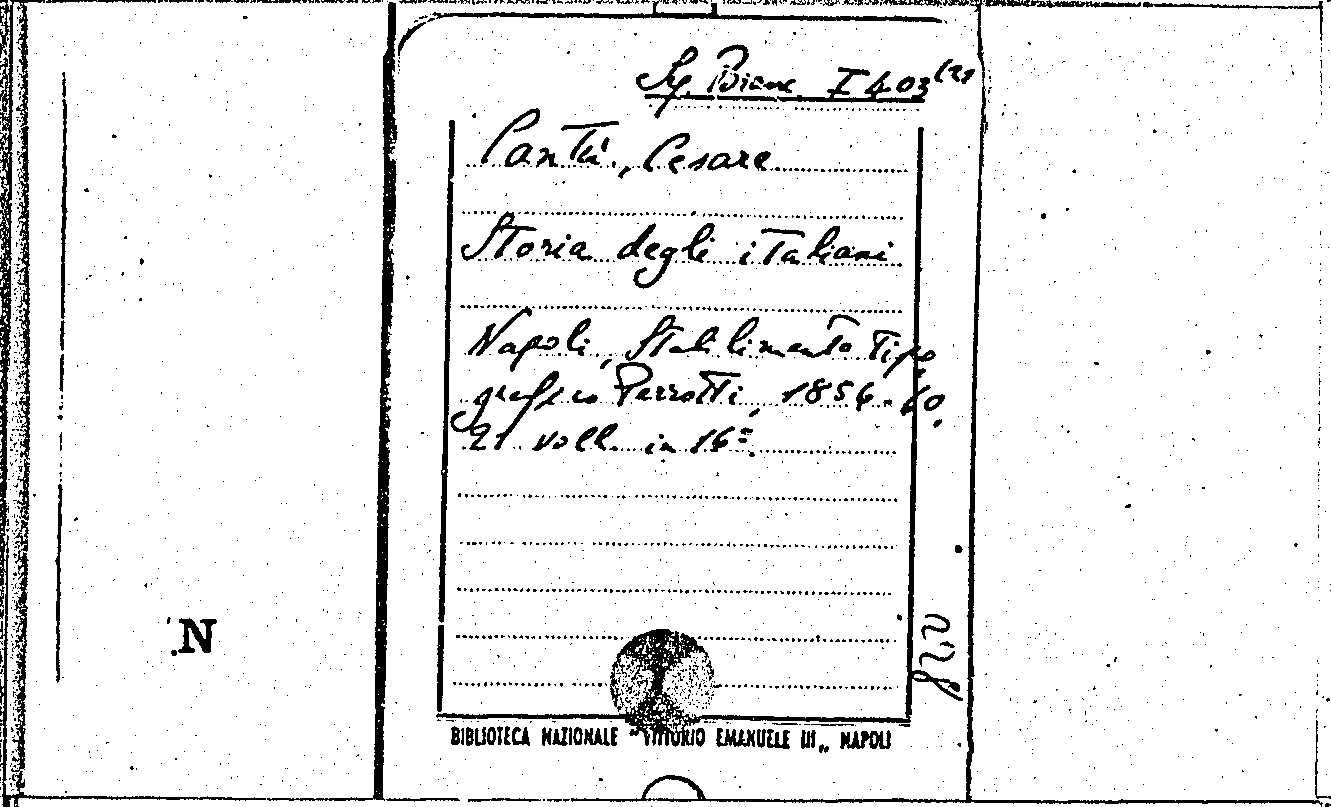 I 403
Cantù, Cesare
Storia degli italiani
Napoli, Stabilimento Tipo
grafico Perrotti, 1856-60.
21 voll. in 16°.
N
BIBLIOTECA NAZIONALE "VITTORIO EMANUELE III„ NAPOLI